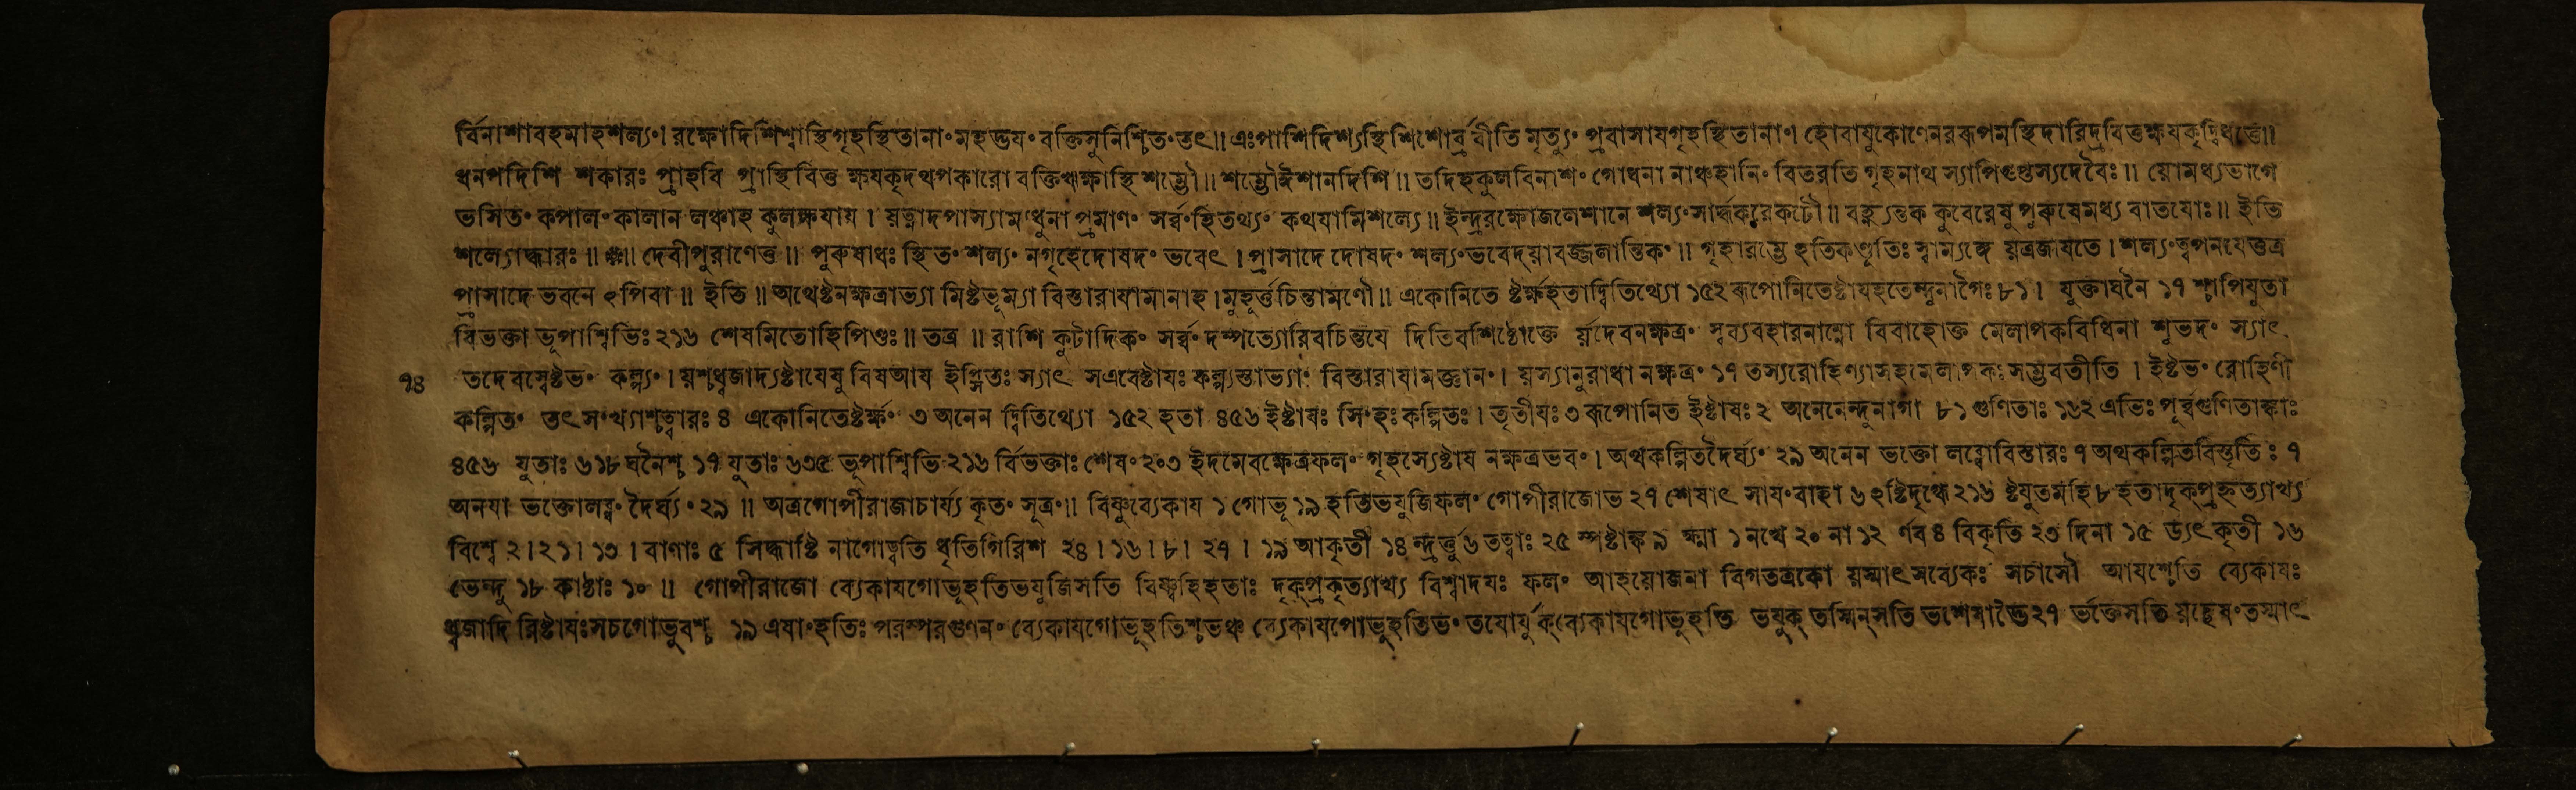 র্বিনাশাবহমাহশল্য॰। রক্ষোদিশিশ্বাস্থিগৃহস্থিতানা॰মহদ্ভয॰বক্তিসুনিশ্চিত॰তৎ॥ এঃপাশিদিশ্যস্থিশিশোর্ব্রবীতি মৃত্যু॰ প্রবাসাযগৃহস্থিতানা॰। হোবাযুকোণেনরৰূপমস্থিদারিদ্রবিত্তক্ষযকৃদ্বিধত্তে॥
ধনপদিশি শকারঃ প্রাহবি প্রাস্থিবিত্ত ক্ষযকৃদথপকারো বক্তিঋক্ষাস্থিশম্ভৌ॥ শম্ভৌঈশানদিশি॥ তদিহকুলবিনাশ॰ গোধনা নাঞ্চহানি॰ বিতরতি গৃহনাথ স্যাপি দেবৈঃ॥ য়োমধ্যভাগে
ভসিত॰ কপাল॰কালান লঞ্চাহ কুলক্ষযায। য়ত্নাদপাস্যামধুনাপ্রমাণ॰ সর্ব্ব॰হিতথ্য॰ কথযামিশল্যে॥ ইন্দ্ররক্ষোজলেশানে শল্য॰সার্দ্ধকরেকটৌ॥ বহ্ন্যন্তক কুবেরেষুপুৰুষেমধ্য বাতযোঃ॥ ইতি
শল্যোদ্ধারঃ॥ ॥ দেবীপুরাণেতু॥ পুৰুষাধঃ স্থিত॰ শল্য॰ নগৃহেদোষদ॰ ভবেৎ। প্রাসাদে দোষদ॰ শল্য॰ভবেদ্য়াবজ্জলান্তিক॰॥ গৃহারম্ভে হতিকণ্ডূতিঃস্বাম্যঙ্গে য়ত্রজাযতে। শল্য॰ত্বপনযেত্তত্র
প্রাসাদেভবনে ঽপিবা॥ ইতি॥ অথেষ্টনক্ষত্রাভ্যা মিষ্টভূম্যা বিস্তারাযামানাহ। মুহূর্ত্তচিন্তামণৌ॥ একোনিতে ষ্টর্ক্ষহতাদ্বিতিথ্যো ১৫২ ৰূপোনিতেষ্টাযহতেন্দুনাগৈঃ ৮১। যুক্তাঘনৈ ১৭ শ্চাপিযুতা
বিভক্তা ভূপাশ্বিভিঃ ২১৬ শেষমিতোহিপিণ্ডঃ॥ তত্র॥ রাশি কূটাদিক॰ সর্ব্ব॰ দম্পত্যোরিবচিন্তযে দিতিবশিষ্ঠোক্তে র্য়দেবনক্ষত্র॰ স্বব্যবহারনাম্নো বিবাহোক্ত মেলাপকবিধিনা শুভদ॰ স্যাৎ
৭৪ তদেবস্বেষ্টভ॰ কল্প্য॰। য়শ্চধ্বজাদ্যষ্টাযেষু বিষআয ইপ্সিতঃ স্যাৎ সএবেষ্টাযঃ কল্প্যস্তাভ্যা॰ বিস্তারাযামজ্ঞান॰। য়স্যানুরাধা নক্ষত্র॰ ১৭ তস্যরোহিণ্যাসহমেলাপকঃ সম্ভবতীতি। ইষ্টভ॰ রোহিণী
কল্পিত॰ তৎস॰খ্যাশ্চত্বারঃ ৪ একোনিতেষ্টর্ক্ষ॰ ৩ অনেন দ্বিতিথ্যো ১৫২ হতা ৪৫৬ ইষ্টাযঃ সি॰হঃ কল্পিতঃ। তৃতীযঃ ৩ ৰূপোনিত ইষ্টাযঃ ২ অনেনেন্দুনাগা ৮১ গুণিতাঃ ১৬২ এভিঃ পূর্ব্বগুণিতাঙ্কাঃ
৪৫৬ যুতাঃ ৬১৮ ঘনৈশ্চ ১৭ যুতাঃ ৬৩৫ ভূপাশ্বিভি ২১৬ র্বিভক্তাঃ শেষ॰ ২০৩ ইদমেবক্ষেত্রফল॰ গৃহস্যেষ্টায নক্ষত্রভব॰। অথকল্পিতদৈর্ঘ্য॰ ২৯ অনেন ভক্তো লব্ধোবিস্তারঃ ৭ অথকল্পিতবিস্তৃতিঃ ৭
অনযা ভক্তোলব্ধ॰ দৈর্ঘ্য॰ ২৯॥ অত্রগোপীরাজাচার্য্য কৃত॰ সূত্র॰॥ বিষ্ণুব্যেকায ১ গোভূ ১৯ হতিভযুজিফল॰ গোপীরাজোভ ২৭ শেষাৎ সায॰বাহা ২১৬ ষ্টযুতমহি ৮ হতাদৃক্প্রকৃত্যাখ্য
বিশ্বে ২। ২১। ১৩। বাণাঃ ৫ সিদ্ধাষ্টি নাগোড্বতি ধৃতিগিরিশ ২৪। ১৬। ৮। ২৭। ১৯ আকৃতী ১৪ ন্দ্রর্ত্তু ৬ তত্বাঃ ২৫ স্পষ্টাঙ্ক ৯ ক্ষ্মা ১ নখে ২০ না ১২ র্ণব ৪ বিকৃতি ২৩ দিনা ১৫ ড্যৎ কৃতী ১৬
ভেন্দু ১৮ কাষ্ঠাঃ ১০॥ গোপীরাজো ব্যেকাযগোভূহতিভযুজিসতি বিষ্ণুহিহতাঃ দৃক্প্রকৃত্যাখ্য বিশ্বাদযঃ ফল॰ আহয়োজনা বিগতত্রকো য়স্মাৎসব্যেকঃ সচাসৌ আযশ্চেতি ব্যেকাযঃ
ধ্বজাদি রিষ্টাযঃসচগোভুবশ্চ ১৯ এষা॰হতিঃ পরস্পরগুণন॰ ব্যেকাযগোভূহতিশ্চভঞ্চ ব্যেকাযগোভূহতিভ॰ তযোর্যুক্ব্যেকাযগোভূহতি ভযুক্ তস্মিন্সতি ভশেষাত্তৈ ২৭ র্ভক্তেসতি য়চ্ছেষ॰তস্মাৎ